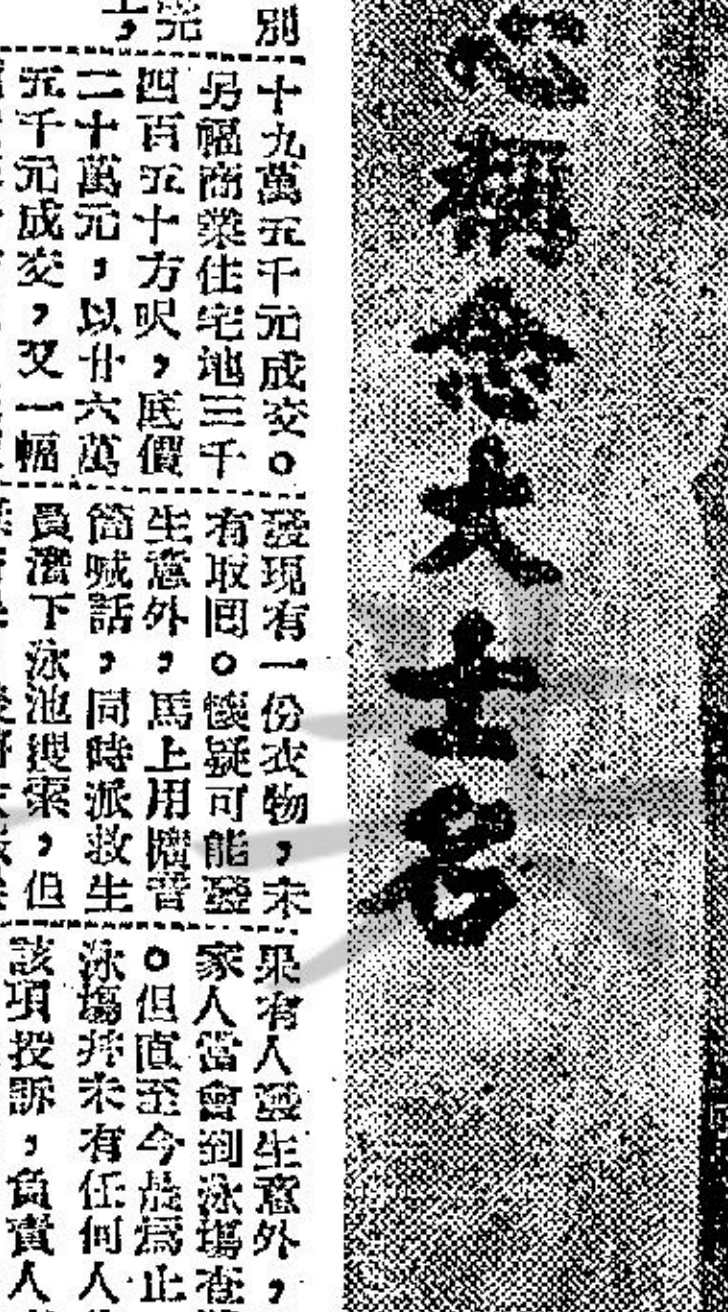 心稱念大士名
別
十九萬五千元成交。
另幅商業住宅地三千
四百五十方呎，底價
二十萬元，以廿六萬
五千元成交，又一幅
發現有一份衣物，未
有取回。懷疑可能發
生意外，馬上用擴音
筒喊話，同時派救生
員潛下泳池搜索，但
果有人發生意外，
家人當會到泳塲查
。但直至今晨爲止
泳塲并未有任何人
該項投訴，負責人